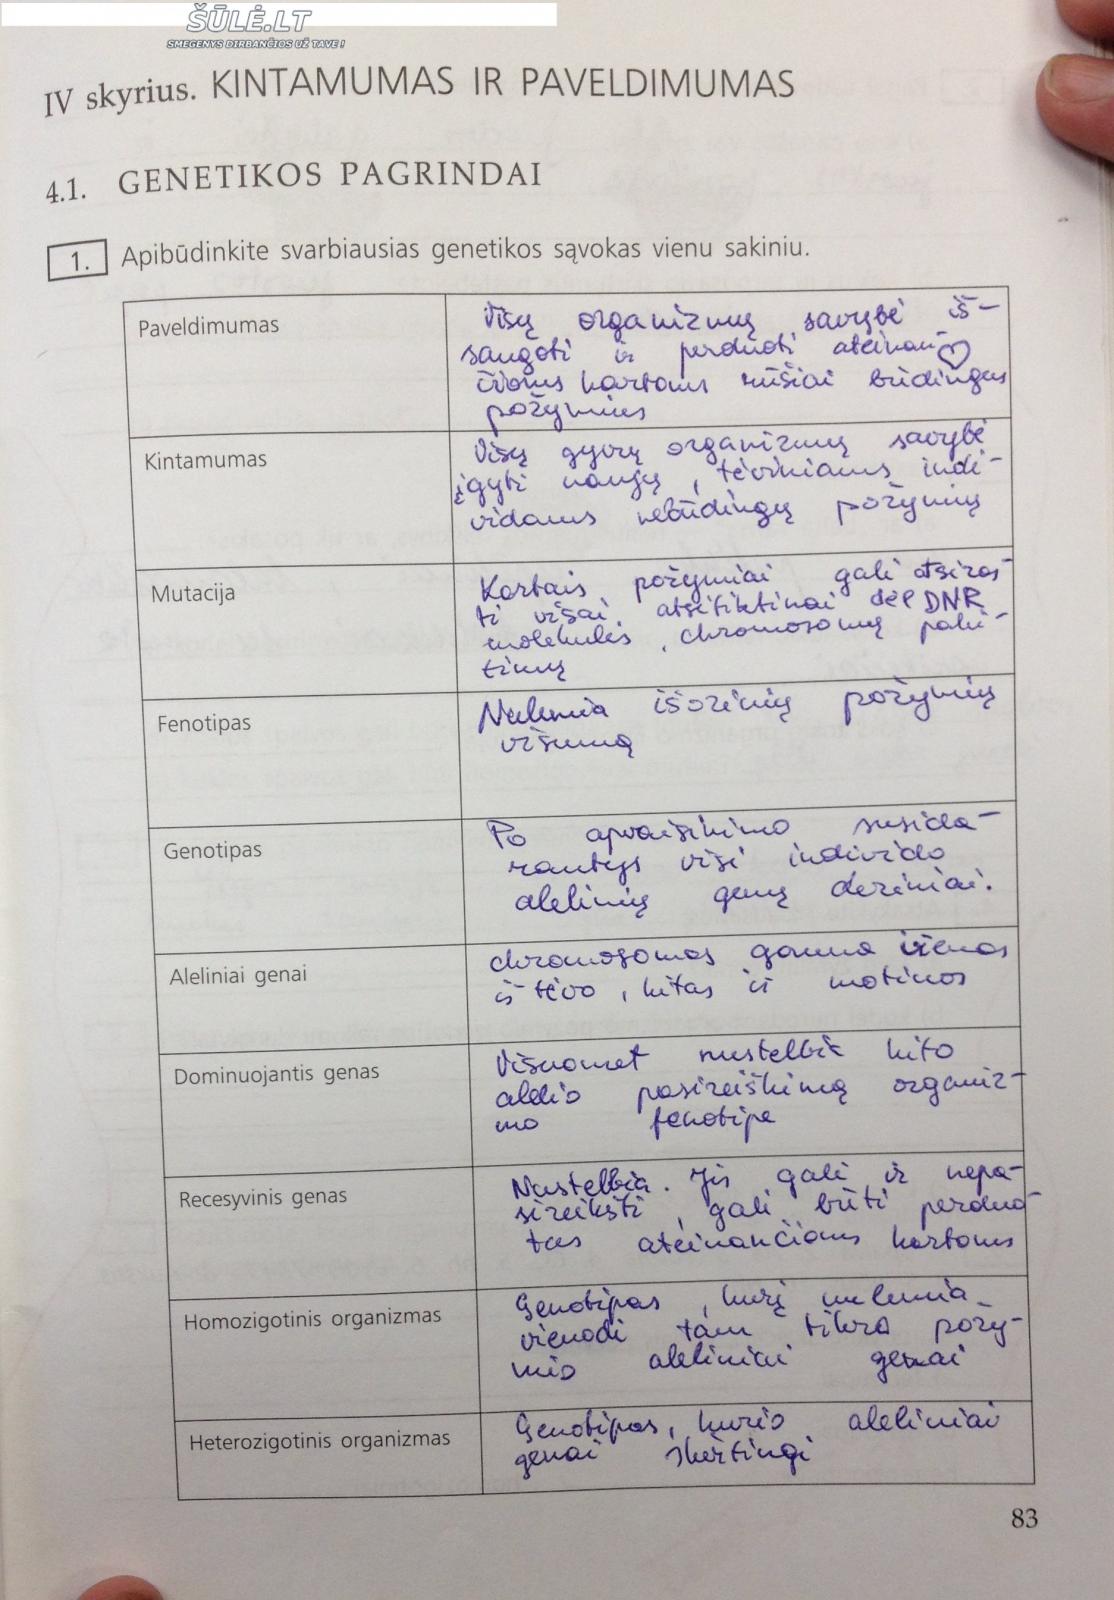 ŠŪLĖ.LT
SMEGENYS DIRBANČIOS UŽ TAVE!
IV skyrius. KINTAMUMAS IR PAVELDIMUMAS
4.1. GENETIKOS PAGRINDAI
1. Apibūdinkite svarbiausias genetikos sąvokas vienu sakiniu.
Paveldimumas
Visų organizmų savybė iš-
saugoti ir perduoti ateinan-
čioms kartoms rūšiai būdingus
požymius
Kintamumas
Visų gyvų organizmų savybė
įgyti naujų, tėviniams indi-
vidams nebūdingų požymių
Mutacija
Kartais požymiai gali atsiras-
ti visai atsitiktinai dėl DNR
molekulės, chromosomų paki-
timų
Fenotipas
Nulemia išorinių požymių
visumą
Genotipas
Po apvaisinimo susida-
rantys visi individo
alelinių genų deriniai.
Aleliniai genai
chromosomas gauna vienas
iš tėvo, kitas iš motinos
Dominuojantis genas
Visuomet nustelbia kito
alelio pasireiškimą organiz-
mo fenotipe
Recesyvinis genas
Nustelbia. Jis gali ir nepa-
sireikšti, gali būti perduo-
tas ateinančioms kartoms
Homozigotinis organizmas
Genotipas, kurį nulemia
vienodi tam tikro požy-
mio aleliniai genai
Heterozigotinis organizmas
Genotipas, kurio aleliniai
genai skirtingi
83